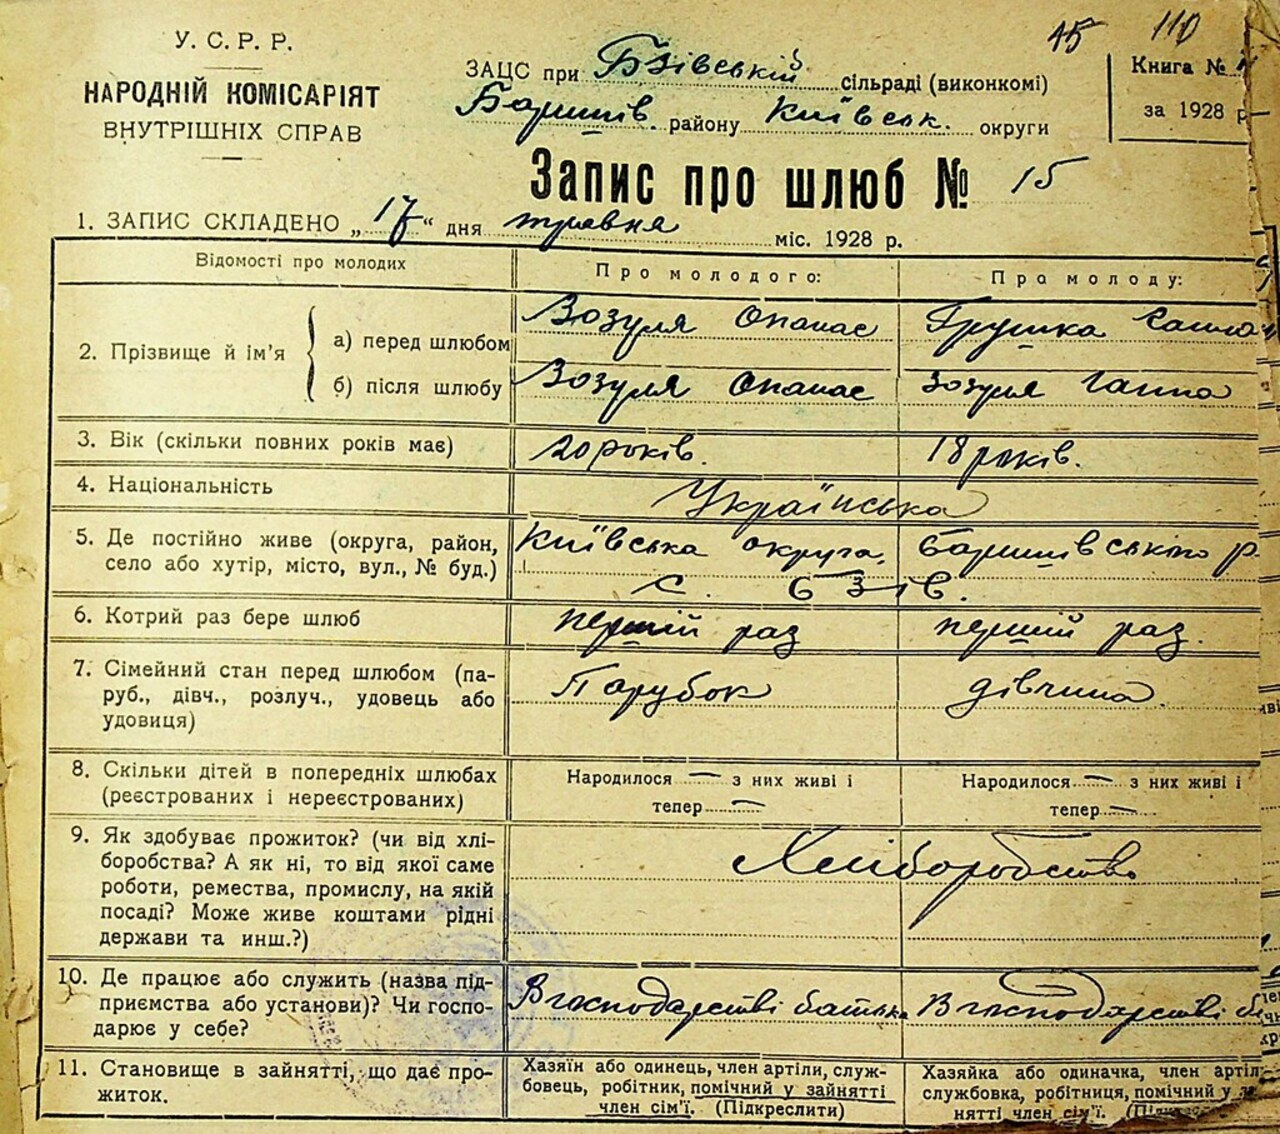 45 110
У. С. Р. Р.
НАРОДНІЙ КОМІСАРІЯТ
ВНУТРІШНІХ СПРАВ
ЗАЦС при Бзівській сільраді (виконкомі)
Баришів. району Київськ. округи
Книга №
за 1928 р.
Запис про шлюб № 15
1. ЗАПИС СКЛАДЕНО „17“ дня травня міс. 1928 р.
Відомості про молодих Про молодого: Про молоду:
2. Прізвище й ім'я
а) перед шлюбом Зозуля Опанас Грушка Ганна
б) після шлюбу Зозуля Опанас Зозуля Ганна
3. Вік (скільки повних років має) 20 років. 18 років.
4. Національність Українська
5. Де постійно живе (округа, район, Київська округа, Баришівського р.
село або хутір, місто, вул., № буд.) с. Бзів.
6. Котрий раз бере шлюб перший раз перший раз.
7. Сімейний стан перед шлюбом (па- Парубок дівчина.
руб., дівч., розлуч., удовець або
удовиця)
8. Скільки дітей в попередніх шлюбах Народилося — з них живі і Народилося — з них живі і
(реєстрованих і нереєстрованих) тепер — тепер —
9. Як здобуває прожиток? (чи від хлі- Хліборобство
боробства? А як ні, то від якої саме
роботи, ремества, промислу, на якій
посаді? Може живе коштами рідні
держави та инш.?)
10. Де працює або служить (назва під- В господарстві батька В господарстві
приємства або установи)? Чи госпо-
дарює у себе?
11. Становище в зайнятті, що дає про- Хазяїн або одинець, член артіли, служ- Хазяйка або одиначка, член артіл
житок. бовець, робітник, помічний у зайнятті службовка, робітниця, помічний у за
член сім'ї. (Підкреслити) нятті член сім'ї. (Підкреслити)